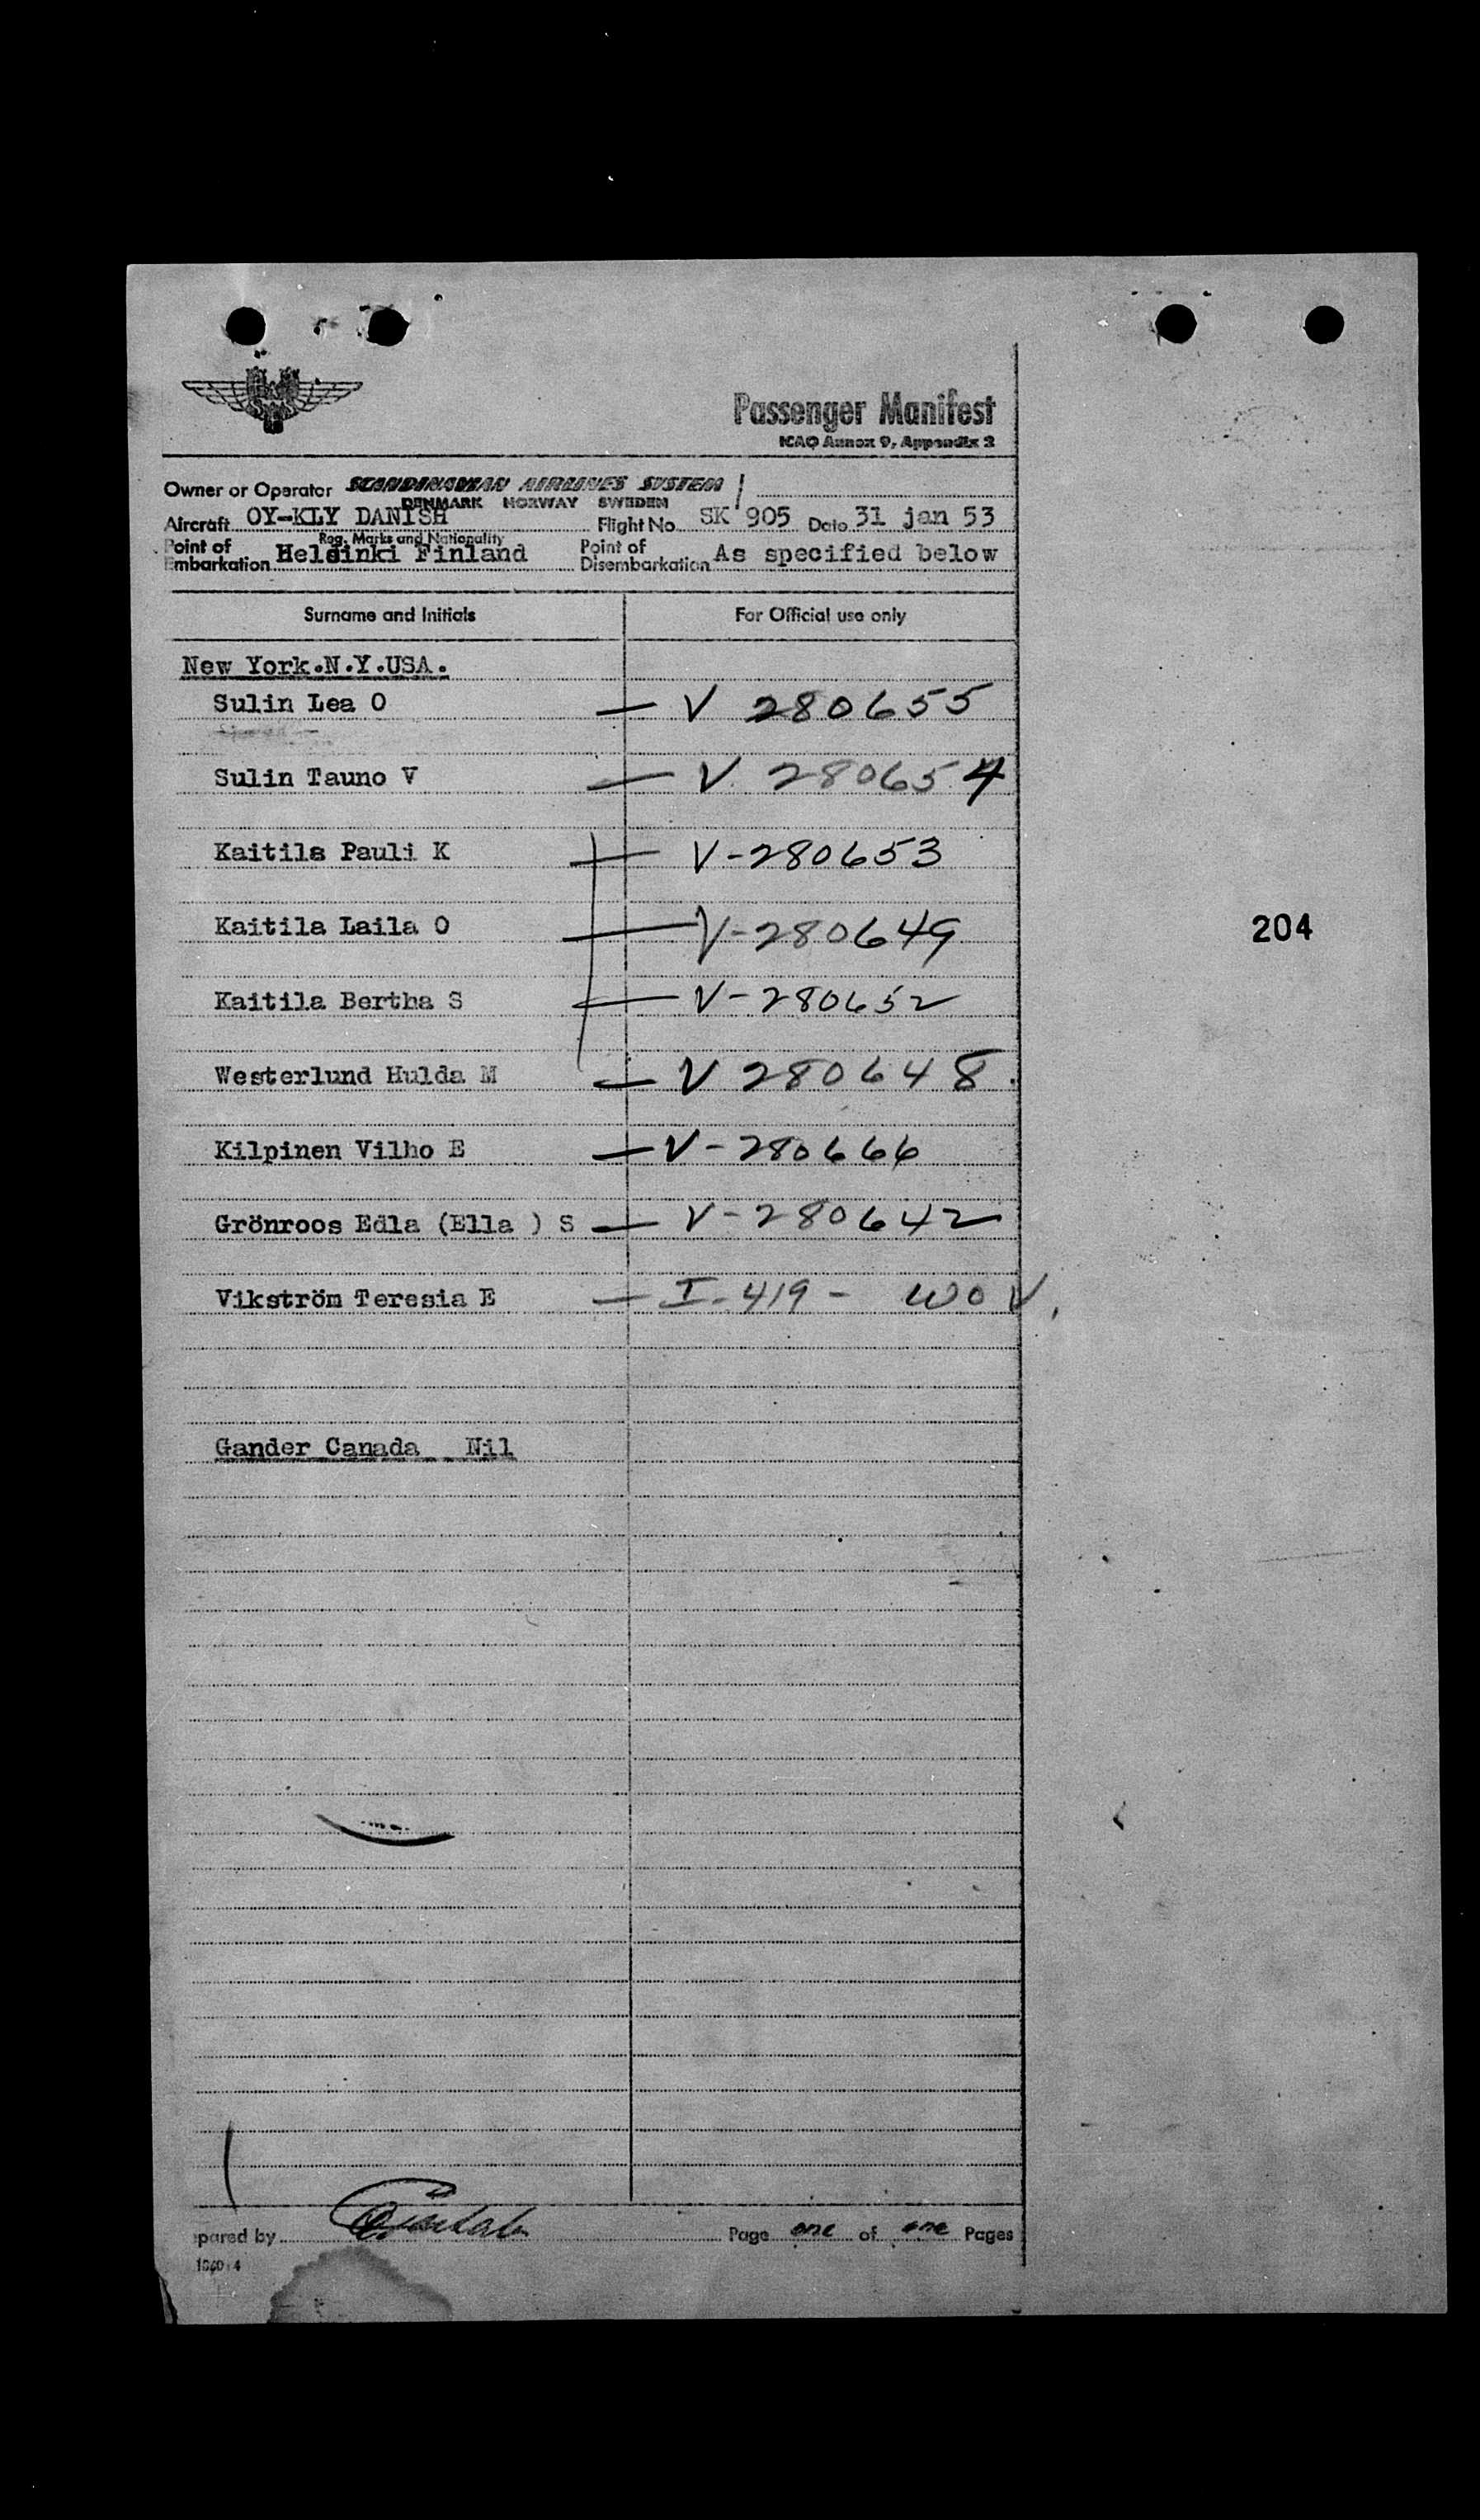 Passenger Manifest
ICAO Annex 9, Appendix 2
Owner or Operator SCANDINAVIAN AIRLINES SYSTEM
DENMARK NORWAY SWEDEN
Aircraft OY-KLY DANISH Flight No SK 905 Date 31 jan 53
Reg. Marks and Nationality
Point of Embarkation Helsinki Finland Point of Disembarkation As specified below
Surname and Initials For Official use only
New York.N.Y.USA.
Sulin Lea O — V 280655
Sulin Tauno V — V. 280654
Kaitila Pauli K — V-280653
Kaitila Laila O — V-280649
204
Kaitila Bertha S — V-280652
Westerlund Hulda M — V 280648.
Kilpinen Vilho E — V-280666
Grönroos Edla (Ella ) S — V-280642
Vikström Teresia E — I-419- WOV.
Gander Canada Nil
pared by Page one of one Pages